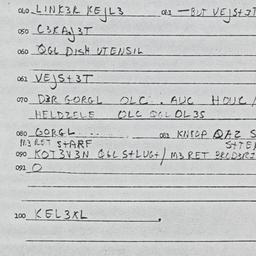 040 LINK3R KEJL3 042 — BUT VEJS+3T
050 C3KAJ3T
060 QGL DISH UTENSIL
061 VEJS+3T
070 D3R GORGL OLC . AUC HOUC /
HELDZELE OLC QGL OL3S
080 GORGL .. 082 KNSOP QAZ S
M3 RET S+ARF S+TE
090 KOT3V3N Q6L S+LUG+/ M3 RET
091 O
100 KEL3XL .